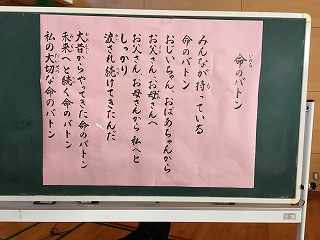 命のバトン
みんなが持っている
命のバトン
おじいちゃん、おばあちゃんから
お父さん、お母さんへ
お父さん、お母さんから私へと
しっかり
渡され続けてきたんだ
大昔からやってきた命のバトン
未来へと続く命のバトン
私の大切な命のバトン